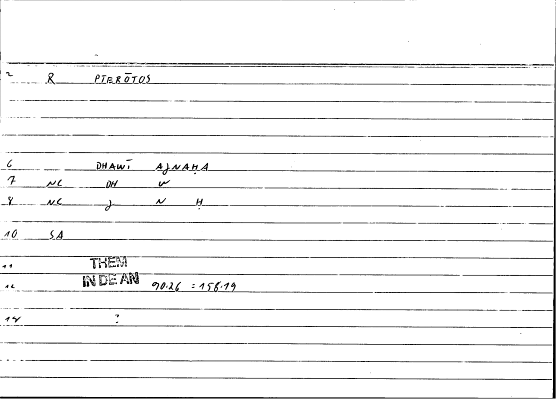 2 R PTERŌTOS
6 DHAWĪ AJNAḤA
7 NC DH W
8 NC J N Ḥ
10 SA
11 THEM
12 IN DE AN 90.26 = 158.19
14 ?